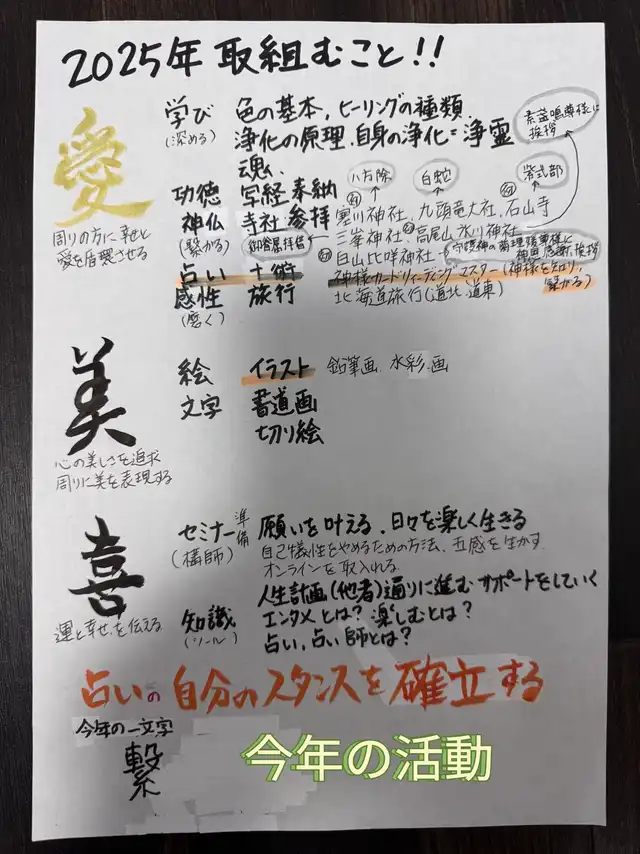 2025年 取組むこと!!
愛
周りの方に幸せと
愛を循環させる
学び 色の基本、ヒーリングの種類
(深める) 浄化の原理、自身の浄化=浄霊
魂、
素盞嗚尊様に
挨拶
八方除
白蛇
紫式部
功徳 写経 奉納
神仏 寺社 参拝 寒川神社、九頭竜大社、石山寺
(繋がる) 御眷属拝借 三峯神社、高尾山 氷川神社
白山比咩神社
守護神の菊理媛尊様に
神恩感謝、挨拶
占い 十術 神様カードリーディングマスター(神様を知り、
繋がる)
感性 旅行 北海道旅行(道北、道東)
(磨く)
美
心の美しさを追求
周りに美を表現する
絵 イラスト 鉛筆画 水彩画
文字 書道画
切り絵
喜
運と幸せを伝える
セミナー準備 願いを叶える、日々を楽しく生きる
(構師) 自己犠牲をやめるための方法、五感を生かす
オンラインを取入れる
人生計画(他者)通りに進むサポートをしていく
知識 エンタメとは? 楽しむとは?
(ツール) 占い、占い師とは?
占いの自分のスタンスを確立する
今年の一文字
繋
今年の活動